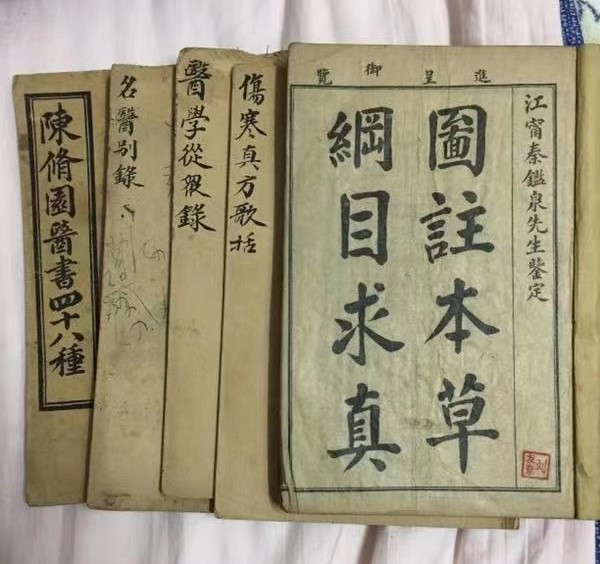 陳脩園醫書四十八種
名醫別錄
醫學從眾錄
傷寒真方歌括
進呈御覽
江甯秦鑑泉先生鑒定
圖註本草
綱目求真